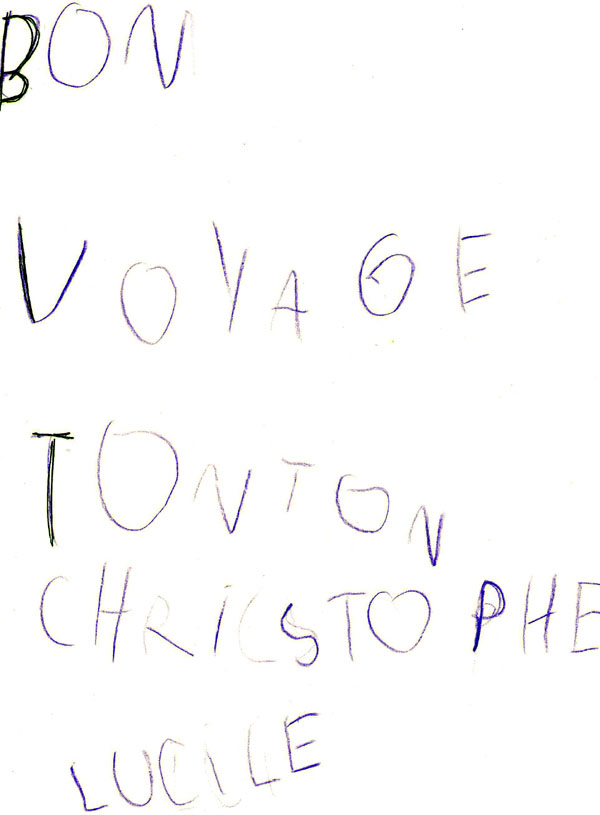 BON
VOYAGE
TONTON
CHRISTOPHE
LUCILE